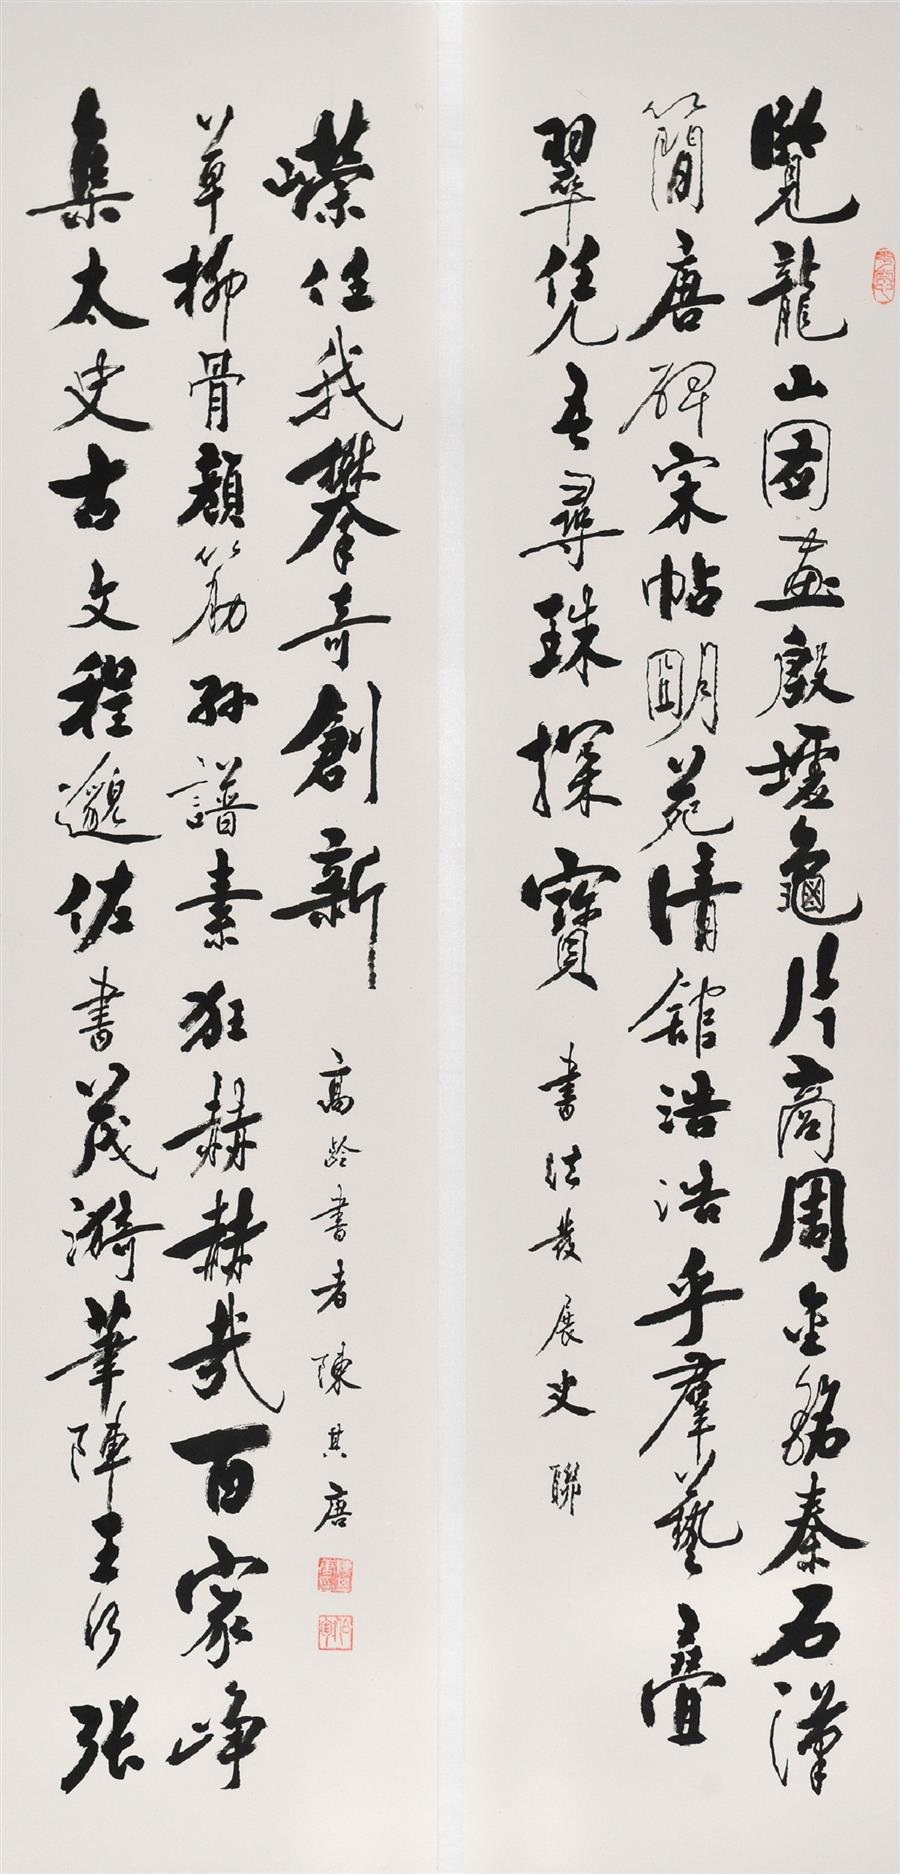 覽龍山圖畫殷墟龜片商周金銘秦石漢
簡唐碑宋帖明苑清館浩浩乎羣藝疊
翠凭吾尋珠探寶
書法發展史聯
集太史古文程邈佐書茂漪筆陣王行張
草柳骨顏筋孫譜素狂赫赫哉百家崢
嶸任我攀奇創新
高齡書者陳其唐